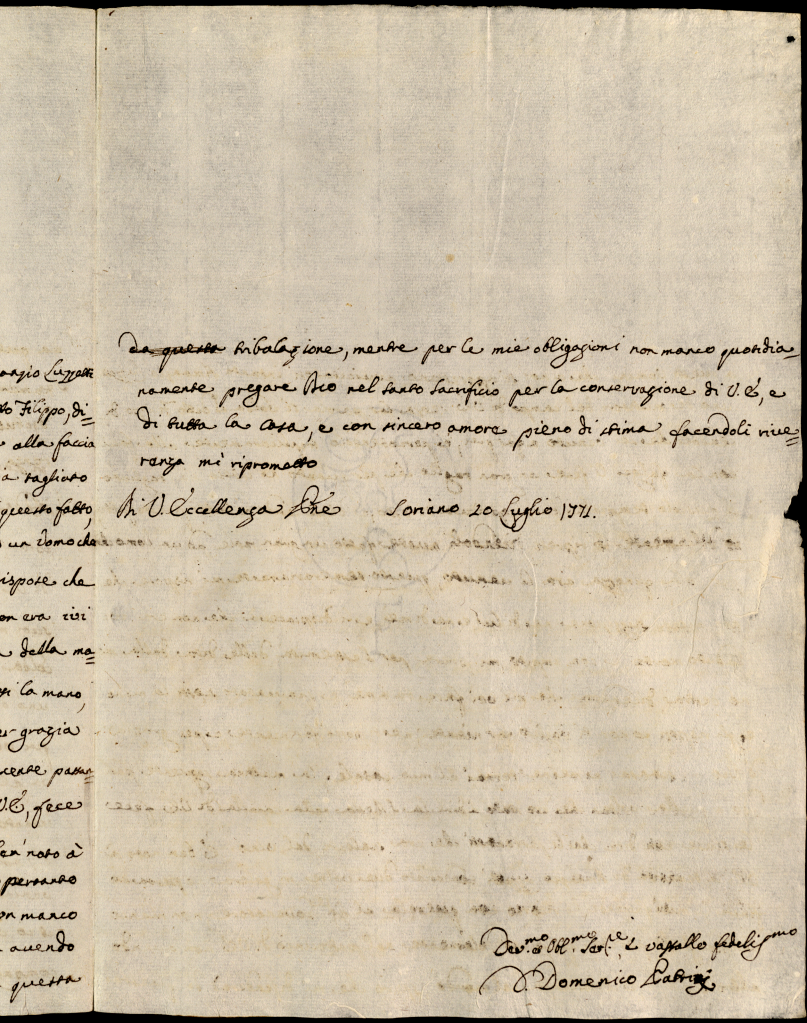 anzio Luzzetti
to Filippo, di=
alla faccia
a tagliato
questo fatto,
un Vomo che
rispose che
on era ivi
della ma=
la mano,
er grazia
cente passan=
V.E, fece
ben' noto à
pertanto
on manco
avendo
questa
da questa tribalazione, mentre per le mie obligazioni non manco quotidia=
namente pregare Dio nel santo Sacrificio per la conservazione di V. E, e
di tutta la Casa, e con sincero amore pieno di stima facendoli rive=
renza mi ripromatto
Di V. Eccellenza Pne Soriano 20 Luglio 1771.
Dev.mo et Obl.mo Ser.re, e vassallo fedelis.mo
D. Domenico Patrizj